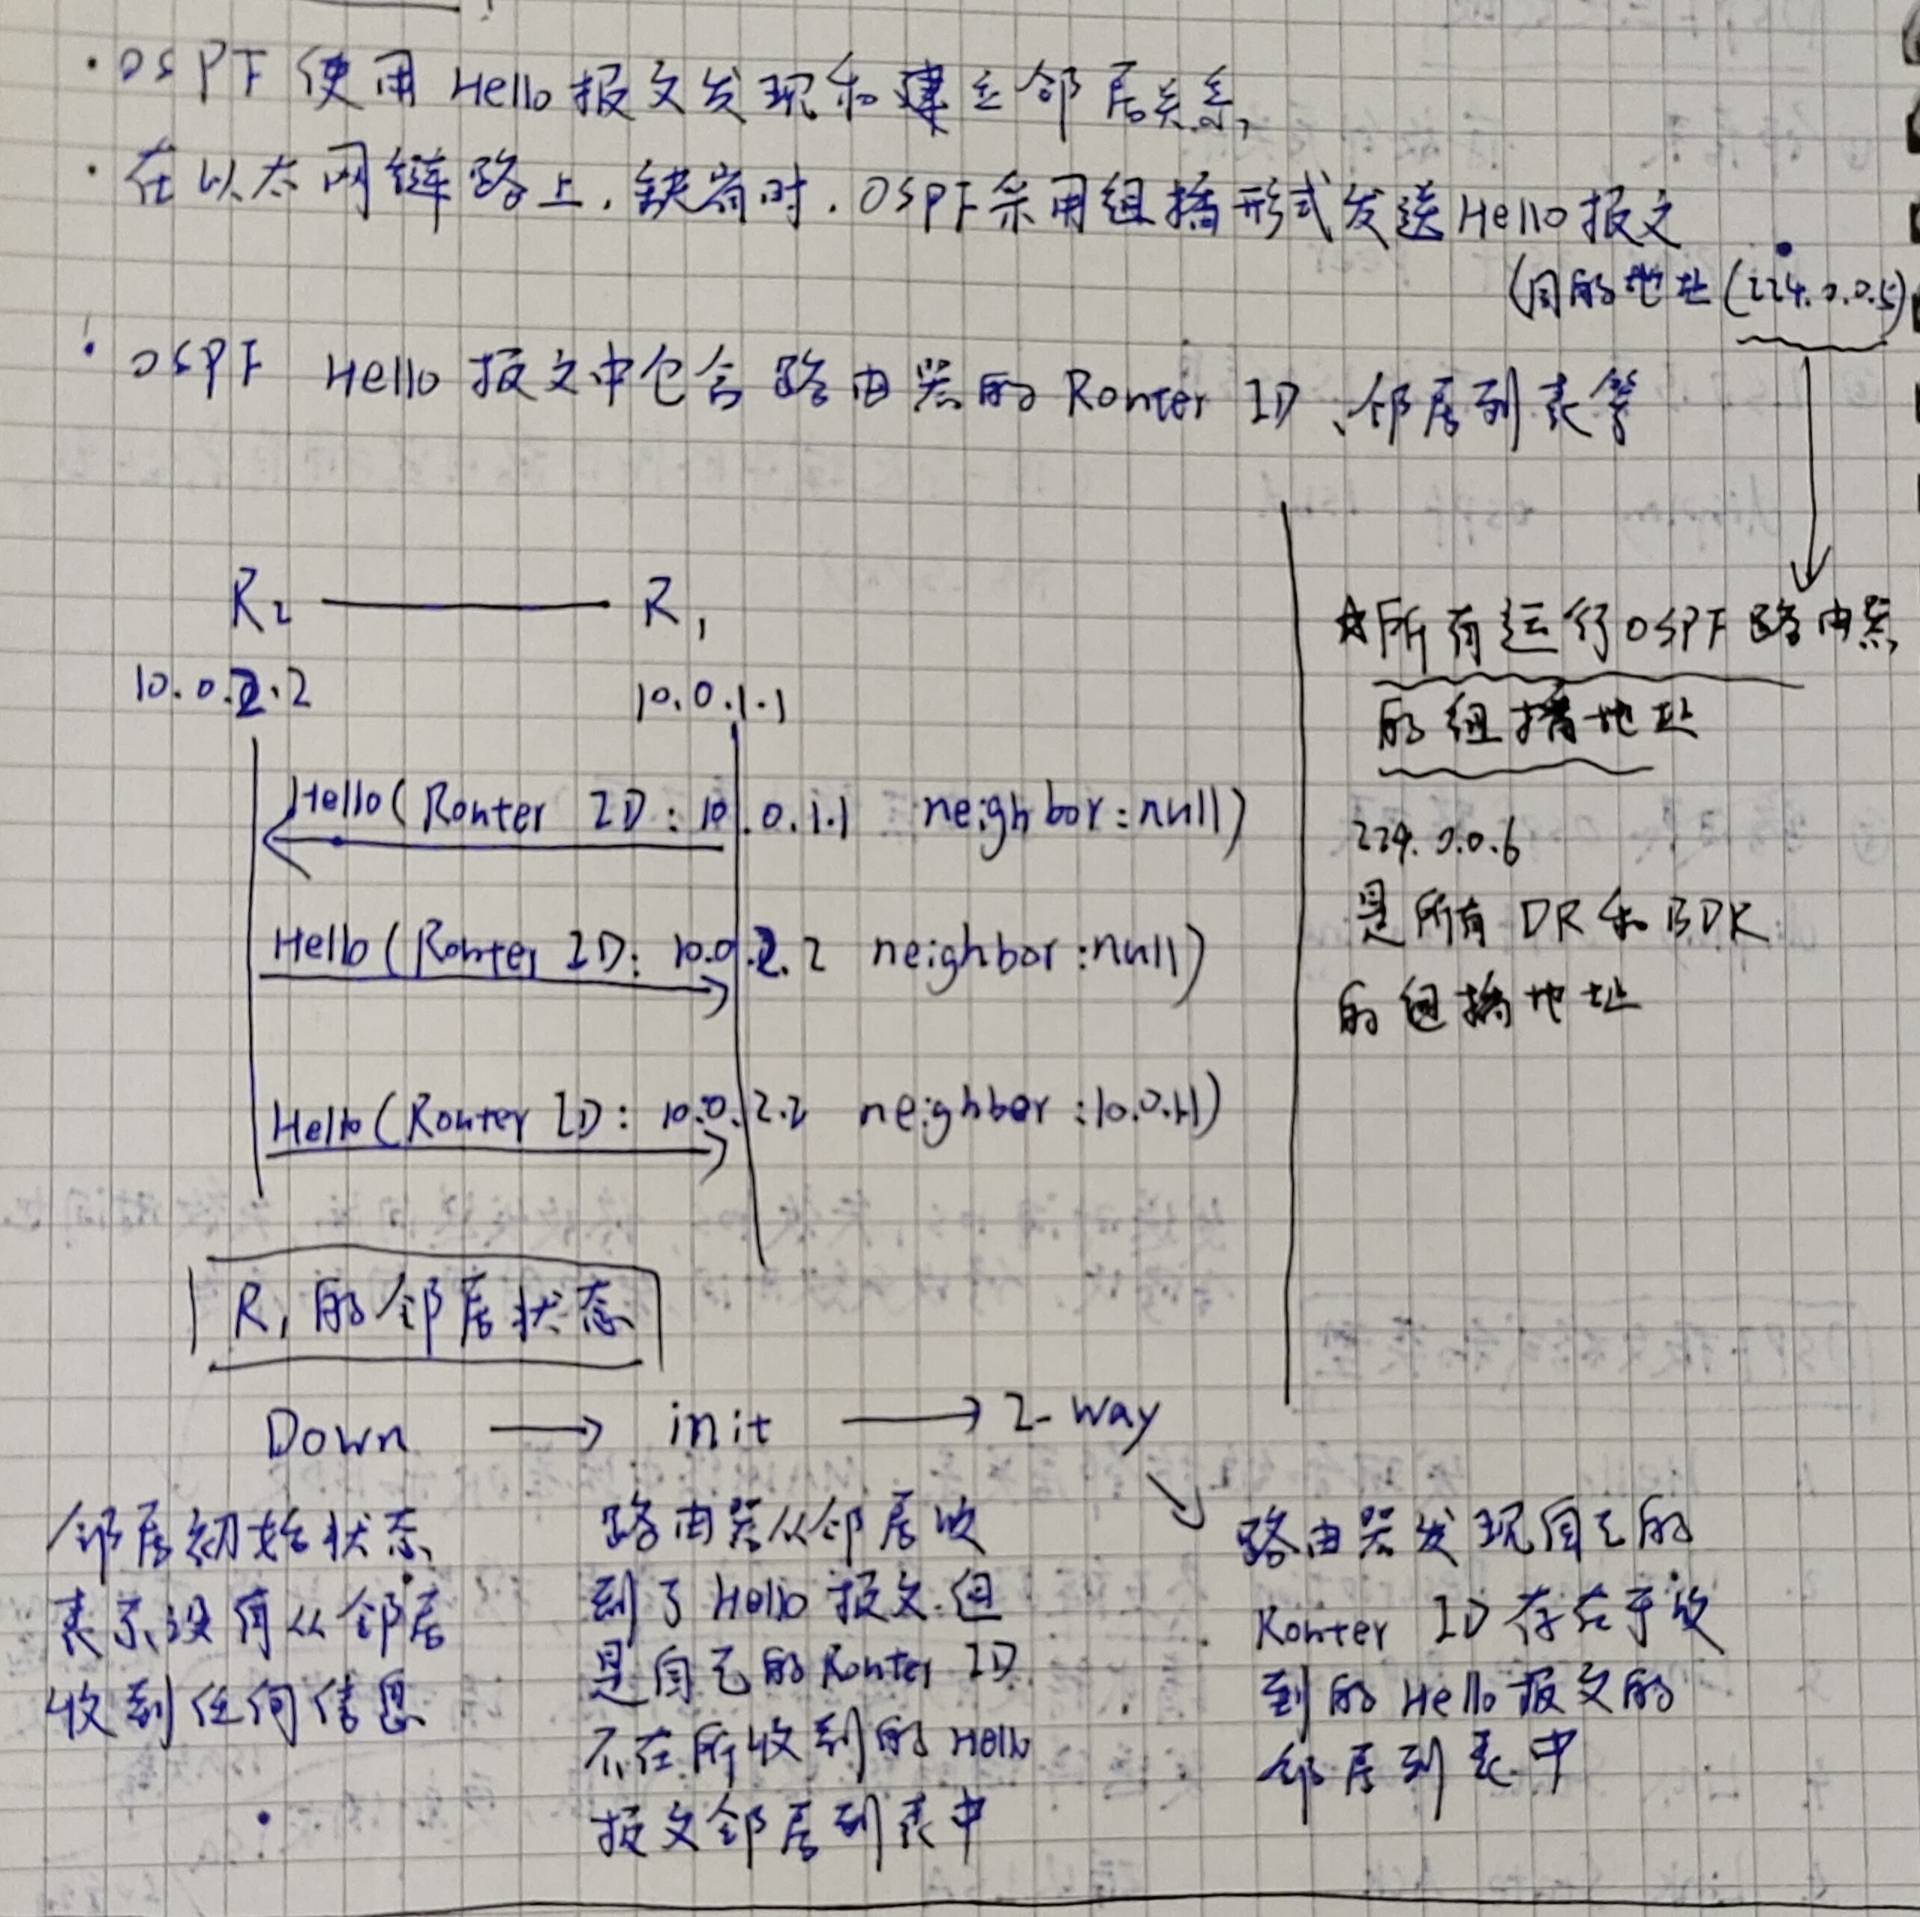 ·OSPF 使用 Hello 报文发现和建立邻居关系,
·在以太网链路上,缺省时,OSPF采用组播形式发送Hello报文
(目的地址(224.0.0.5)
·OSPF Hello 报文中包含路由器的 Router ID、邻居列表等
R2 —— R1
10.0.2.2 10.0.1.1
Hello(Router ID: 10.0.1.1 neighbor:null)
Hello(Router ID: 10.0.2.2 neighbor:null)
Hello(Router ID: 10.0.2.2 neighbor:10.0.1.1)
☆所有运行OSPF路由器
的组播地址
224.0.0.6
是所有 DR和BDR
的组播地址
R1的邻居状态
Down → init → 2-way
邻居初始状态
表示没有从邻居
收到任何信息
路由器从邻居收
到了Hello报文.但
是自己的Router ID
不在所收到的Hello
报文邻居列表中
路由器发现自己的
Router ID存在于收
到的Hello报文的
邻居列表中